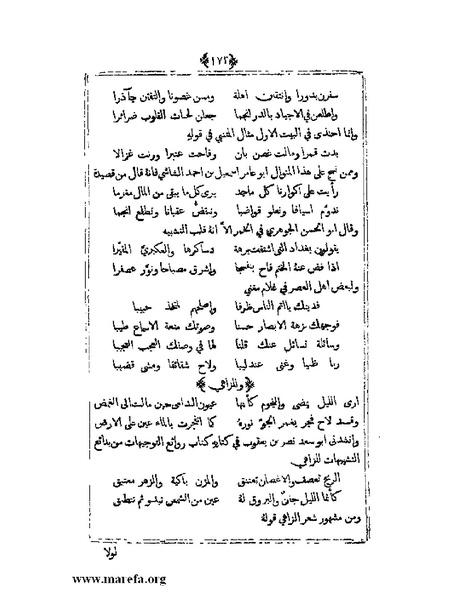 ﴿١٧٢﴾
سفرن بدورا وانتقبن اهلة ومسن غصونا والتفتن جآذرا
واطلعن في الاجياد بالدر انجما جعلن لحبات القلوب ضرائرا
وانما احتذى في البيت الاول مثال المتنبي في قوله
بدت قمرا ومالت غصن بان وفاحت عنبرا ورنت غزالا
وممن نسج على هذا المنوال ابو عامر اسمعيل بن احمد الشاشي فانه قال من قصيدة
رأيت على اكوارنا كل ماجد يرى كل ما يبقى من المال مغرما
ندوم اسيافا ونعلو قواضبا وننقض عقبانا ونطلع انجما
وقال ابو الحسن الجوهري في الخمر الا انه قلب التشبيه
يقولون بغداد التي اشتقت برهة دساكرها والعكبري المقيرا
اذا فض عنه الختم فاح بنفسجا واشرق مصباحا ونور عصفرا
ولبعض اهل العصر في غلام مغني
فديتك يا اتم الناس ظرفا واصلحهم لمتخذ حبيبا
فوجهك نزهة الابصار حسنا وصوتك متعة الاسماع طيبا
وسائلة تسائل عنك قلنا لها في وصفك العجب العجيبا
رنا ظبيا وغنى عندليبا ولاح شقائقا ومشى قضيبا
﴿وللزاهي﴾
ارى الليل يمضى والنجوم كأنها عيون الندامى حين مالت الى الغمض
وقد لاح فجر يغمر الجو نوره كما انفجرت بالماء عين على الارض
وانشدني ابو سعد نصر بن يعقوب في كتابه كتاب روائع التوجيهات من بدائع
التشبيهات للزاهي
الريح تعصف والاغصان تعتنق والمزن باكية والزهر معتبق
كأنما الليل جفن والبروق له عين من الشمس تبدو ثم تنطبق
ومن مشهور شعر الزاهي قوله
لولا
www.marefa.org